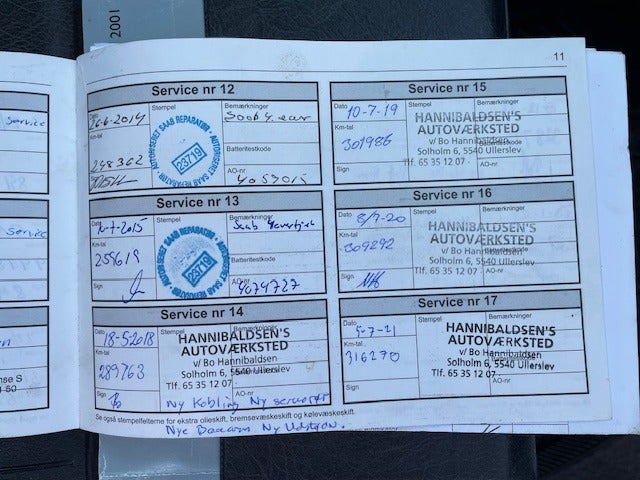 2001
11
Service
Service
Service nr 12
Dato 26-6-2014
Stempel
Bemærkninger
Km-tal
248362
AUTORISERET SAAB REPARATØR
23719
Batteritestkode
AO-nr
4053015
Service nr 13
Dato
-7-2015
Stempel
Bemærkninger
Saab
Km-tal
259619
AUTORISERET SAAB REPARATØR
23719
Batteritestkode
Sign
AO-nr
4074727
Service nr 14
Dato 18-52018
Stempel
Bemærkninger
Km-tal
289763
HANNIBALDSEN'S
AUTOVÆRKSTED
v/ Bo Hannibaldsen
Solholm 6, 5540 Ullerslev
Tlf. 65 35 12 07
AO-nr
Sign
Ny Kobling Ny
Service nr 15
Dato 10-7-19
Stempel
Bemærkninger
Km-tal
301986
HANNIBALDSEN'S
AUTOVÆRKSTED
v/ Bo Hannibaldsen
Solholm 6, 5540 Ullerslev
Tlf. 65 35 12 07
AO-nr
Sign
Service nr 16
Dato 8/7-20
Stempel
Bemærkninger
Km-tal
309292
HANNIBALDSEN'S
AUTOVÆRKSTED
v/ Bo Hannibaldsen
Solholm 6, 5540 Ullerslev
Tlf. 65 35 12 07
AO-nr
Sign
Service nr 17
Dato
-7-21
Stempel
Bemærkninger
Km-tal
316270
HANNIBALDSEN'S
AUTOVÆRKSTED
v/ Bo Hannibaldsen
Solholm 6, 5540 Ullerslev
Tlf. 65 35 12 07
AO-nr
Sign
Se også stempelfelterne for ekstra olieskift, bremsevæskeskift og kølevæskeskift.
Nye Ny